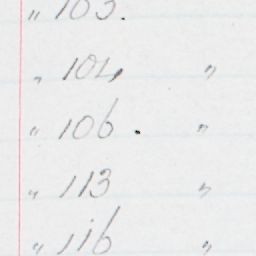 " 103.
" 104 "
" 106. "
" 113 "
" 116 "